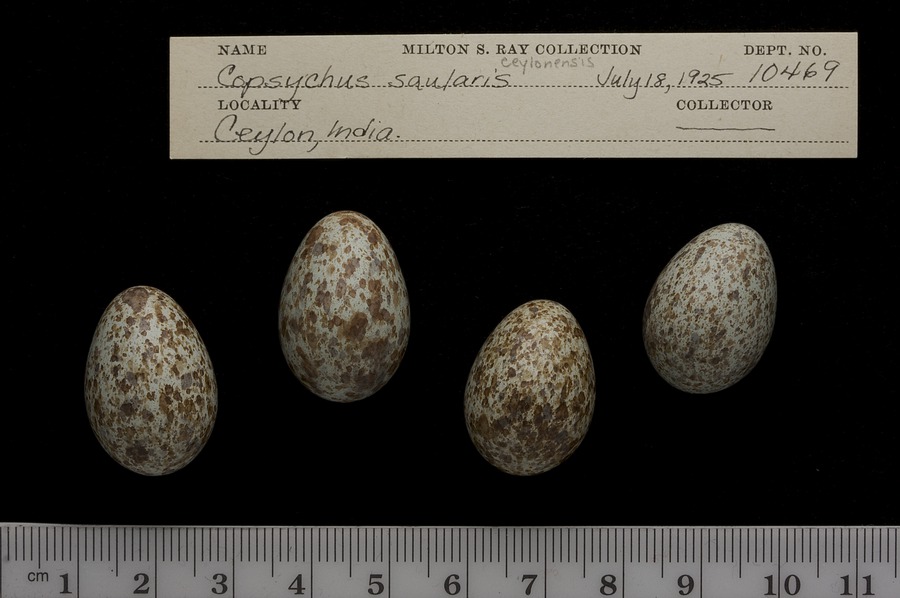 NAME MILTON S. RAY COLLECTION DEPT. NO.
ceylonensis
Copsychus saularis July 18, 1925 10469
LOCALITY COLLECTOR
Ceylon, India.
cm 1 2 3 4 5 6 7 8 9 10 11